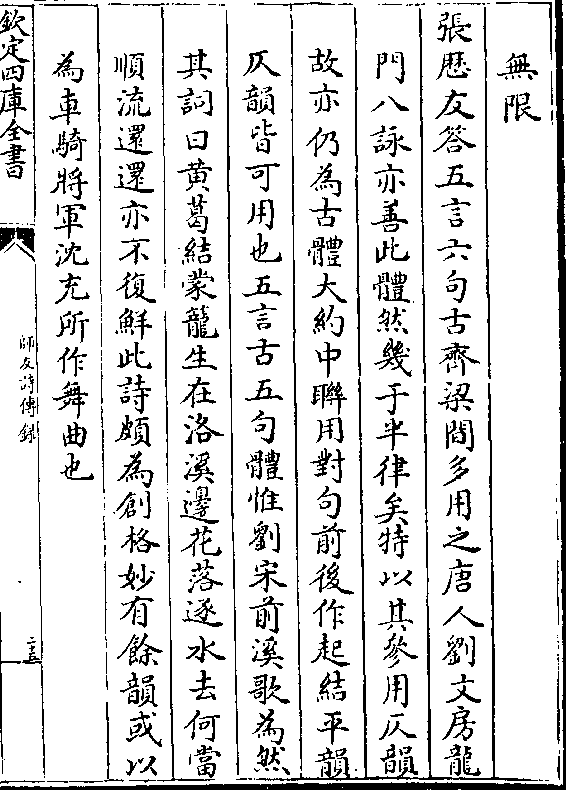 無限
張歴友答五言六句古齊梁間多用之唐人劉文房龍
門八詠亦善此體然幾于半律矣特以其參用仄韻
故亦仍為古體大約中聯用對句前後作起結平韻
仄韻皆可用也五言古五句體惟劉宋前溪歌為然
其詞曰黄葛結蒙籠生在洛溪邊花落逐水去何當
順流還還亦不復鮮此詩頗為創格妙有餘韻或以
為車騎將軍沈充所作舞曲也
欽定四庫全書
師友詩傳録
二十五